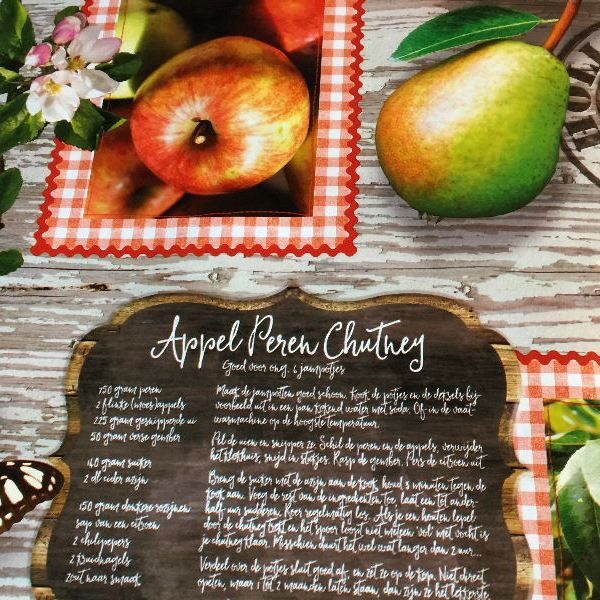 Appel Peren Chutney
Goed voor ong. 6 jampotjes
750 gram peren
2 flinke (moes)appels
225 gram gesnipperde ui
50 gram verse gember
160 gram suiker
2 dl cider azijn
150 gram donkere rozijnen
sap van een citroen
2 chilipepers
2 kruidnagels
zout naar smaak
Maak de jampotten goed schoon. Kook de potjes en de deksels bij
voorbeeld uit in een pan kokend water met soda. Of in de vaat-
wasmachine op de hoogste temperatuur.
Pel de uien en snipper ze. Schil de peren en de appels, verwijder
het klokhuis, snijd in stukjes. Rasp de gember. Pers de citroen uit.
Breng de suiker met de azijn aan de kook, houd 5 minuten tegen de
kook aan. Voeg de rest van de ingrediënten toe, laat een tot ander-
half uur sudderen. Roer regelmatig goed. Als je een houten lepel
door de chutney trekt en het spoor loopt niet meteen vol met vocht is
je chutney klaar. Misschien duurt het wel wat langer dan 2 uur...
Verdeel over de potjes sluit goed af en zet ze op de kop. Niet direct
openen, maar 1 tot 2 maanden laten staan, dan zijn ze het lekkerste